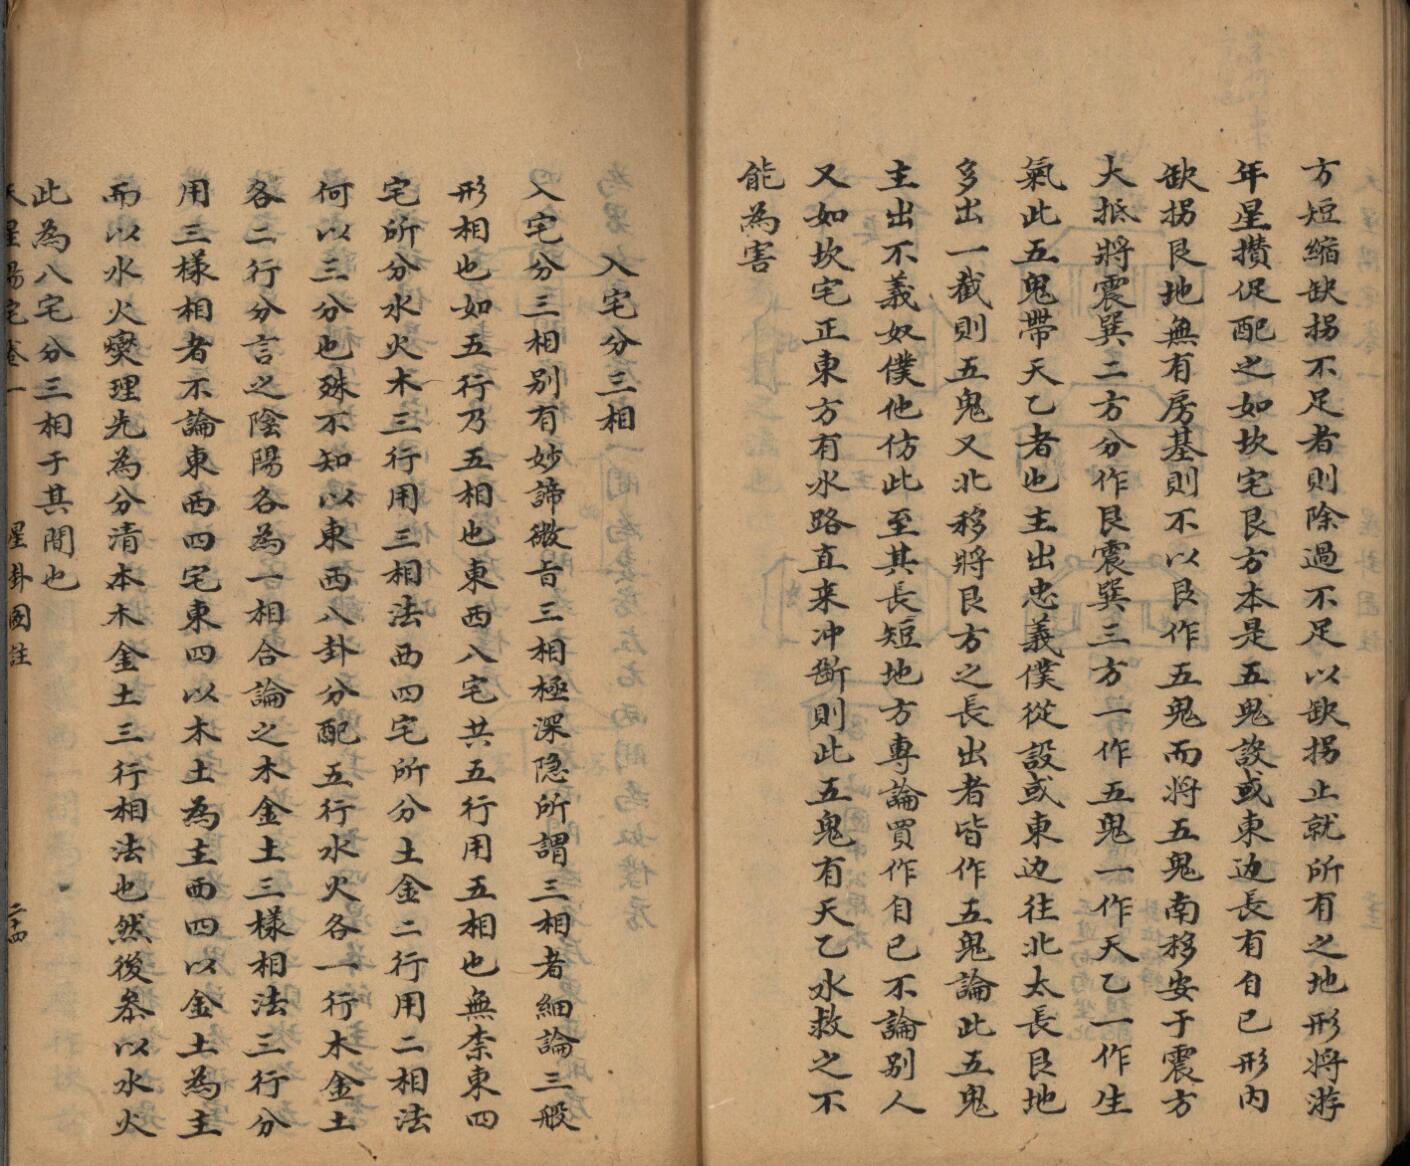 方短縮缺拐不足者則除過不足以缺拐止就所有之地形将游
年星攅促配之如坎宅艮方本是五鬼設或東边長有自已形内
缺拐艮地無有房基則不以艮作五鬼而将五鬼南移安于震方
大抵將震巽二方分作艮震巽三方一作五鬼一作天乙一作生
氣此五鬼帶天乙者也主出忠義僕從設或東边往北太長艮地
多出一截則五鬼又北移將艮方之長出者皆作五鬼論此五鬼
主出不義奴僕他仿此至其長短地方專論買作自已不論别人
又如坎宅正東方有水路直来冲斷則此五鬼有天乙水救之不
能為害
入宅分三相
入宅分三相别有妙諦微旨三相極深隐所謂三相者細論三般
形相也如五行乃五相也東西八宅共五行用五相也無柰東四
宅所分水火木三行用三相法西四宅所分土金二行用二相法
何以三分也殊不知以東西八卦分配五行水火各一行木金土
各二行分言之陰陽各為一相合論之木金土三樣相法三行分
用三樣相者不論東西四宅東四以木土為主西四以金土為主
而以水火爕理先為分清本木金土三行相法也然後叅以水火
此為八宅分三相于其間也
天星陽宅卷一 星卦圖註 二十四